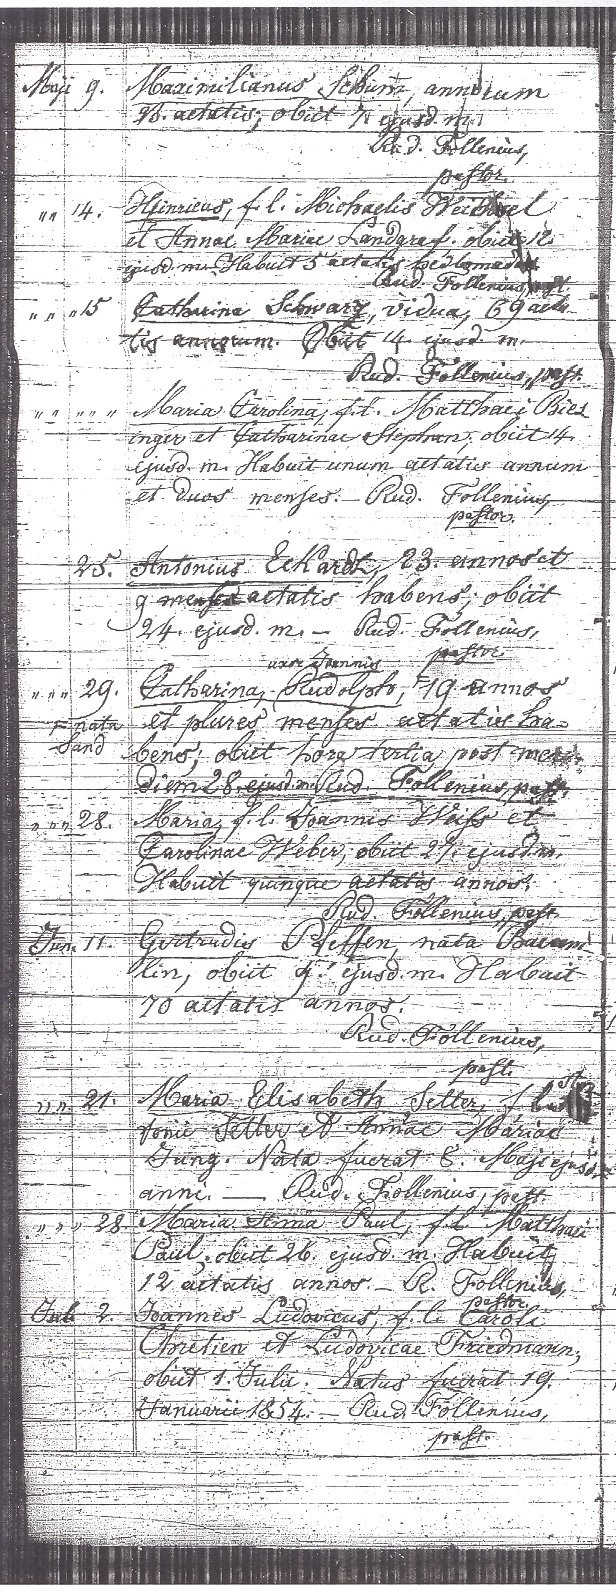 Maji 9. Maximilianus Schum, annorum
aetatis; obiit 7 ejusd. m.
Rud. Follenius,
pastor.
„ „ 14. Heinricus, f. l. Michaelis Weichsel
et Annae Mariae Landgraf. obiit 12
ejusd. m. Habuit 5 aetatis hebdomadas
Rud. Follenius, past.
„ „ „ 15 Catharina Schwarz, vidua, 69 aeta-
tis annorum. Obiit 14. ejusd. m.
Rud. Follenius, past.
„ „ „ „ Maria Carolina, f. l. Matthaei Bies
inger et Catharinae Stephan; obiit 14.
ejusd. m. Habuit unum aetatis annum
et duos menses. — Rud. Follenius,
pastor.
25. Antonius Eckardt, 23. annos et
9 menses aetatis habens; obiit
24. ejusd. m. — Rud. Follenius,
pastor.
uxor Joannis
„ „ „ 29. Catharina Rudolph, 19 annos
nata et plures menses aetatis ha-
Sand bens; obiit hora tertia post meri-
diem 28. ejusd. m. Rud. Follenius, past.
„ „ „ 28. Maria, f. l. Joannis Weiss et
Carolinae Weber, obiit 27. ejusd. m.
Habuit quinque aetatis annos.
Rud. Follenius, past.
Jun. 11. Gertrudis Pfeffen, nata
lin, obiit 9. ejusd. m. Habuit
70 aetatis annos.
Rud. Follenius,
past.
„ „ „ 21. Maria Elisabeth Setter, f. l. An
tonii Setter et Annae Mariae
Jung. Nata fuerat 8. Maji ejusd.
anni. — Rud. Follenius, past.
„ „ „ 28. Maria Anna Paul, f. l. Matthaei
Paul, obiit 26. ejusd. m. Habuit
12 aetatis annos. — R. Follenius,
pastor.
Juli 2. Joannes Ludovicus, f. l. Caroli
Chretien et Ludovicae Friedmann;
obiit 1. Julii. Natus fuerat 19.
Januarii 1854. — Rud. Follenius,
past.